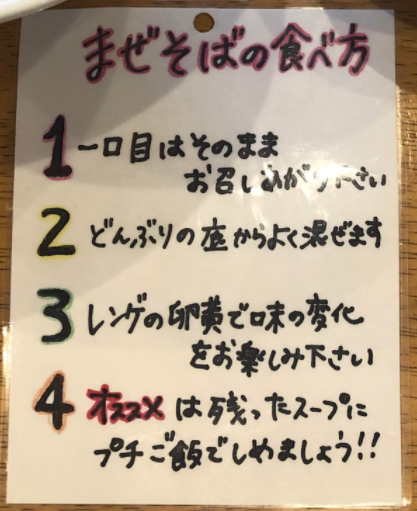 まぜそばの食べ方
1 一口目はそのまま
お召しあがり下さい
2 どんぶりの底からよく混ぜます
3 レンゲの卵黄で味の変化
をお楽しみ下さい
4 オススメは残ったスープに
プチご飯でしめましょう!!